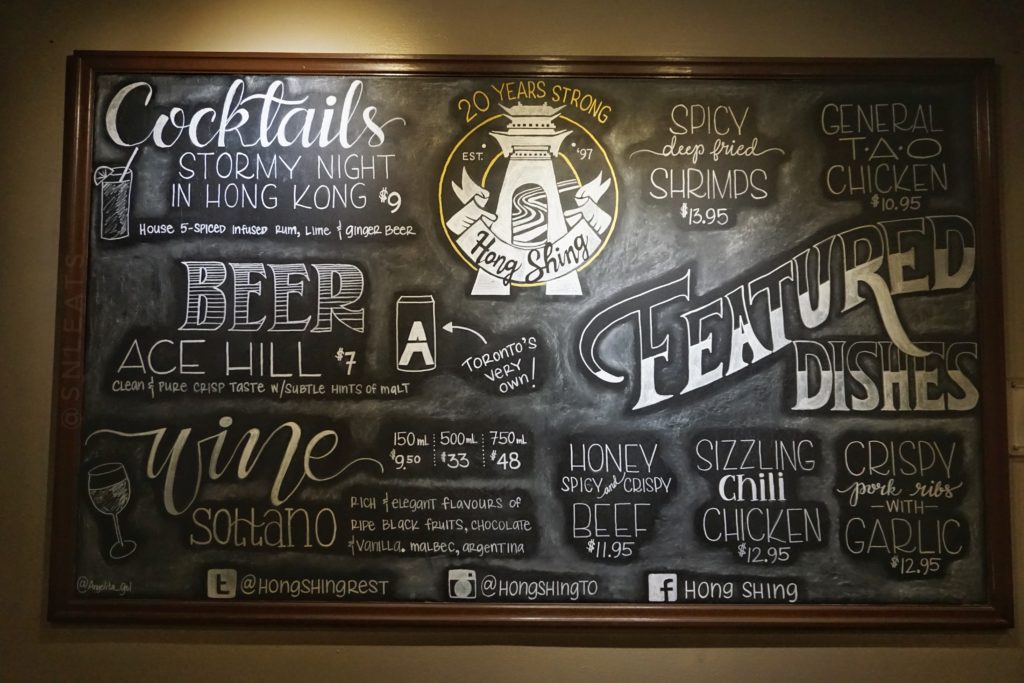 Cocktails
STORMY NIGHT
IN HONG KONG $9
HOUSE 5-SPICED INFUSED RUM, LIME & GINGER BEER
20 YEARS STRONG
EST. '97
Hong Shing
SPICY
deep fried
SHRIMPS
$13.95
GENERAL
T·A·O
CHICKEN
$10.95
BEER
ACE HILL $7
CLEAN & PURE CRISP TASTE W/SUBTLE HINTS OF MALT
A
TORONTO'S
VERY
OWN!
FEATURED
DISHES
Wine
Sottano
150mL 500mL 750mL
$9.50 $33 $48
RICH & ELEGANT FLAVOURS OF
RIPE BLACK FRUITS, CHOCOLATE
& VANILLA. MALBEC, ARGENTINA
HONEY
SPICY and CRISPY
BEEF
$11.95
SIZZLING
chili
CHICKEN
$12.95
CRISPY
pork ribs
-WITH-
GARLIC
$12.95
@Angelita_gol
t @HONGSHINGREST
@HONGSHINGTO
f HONG SHING
@SML.EATS